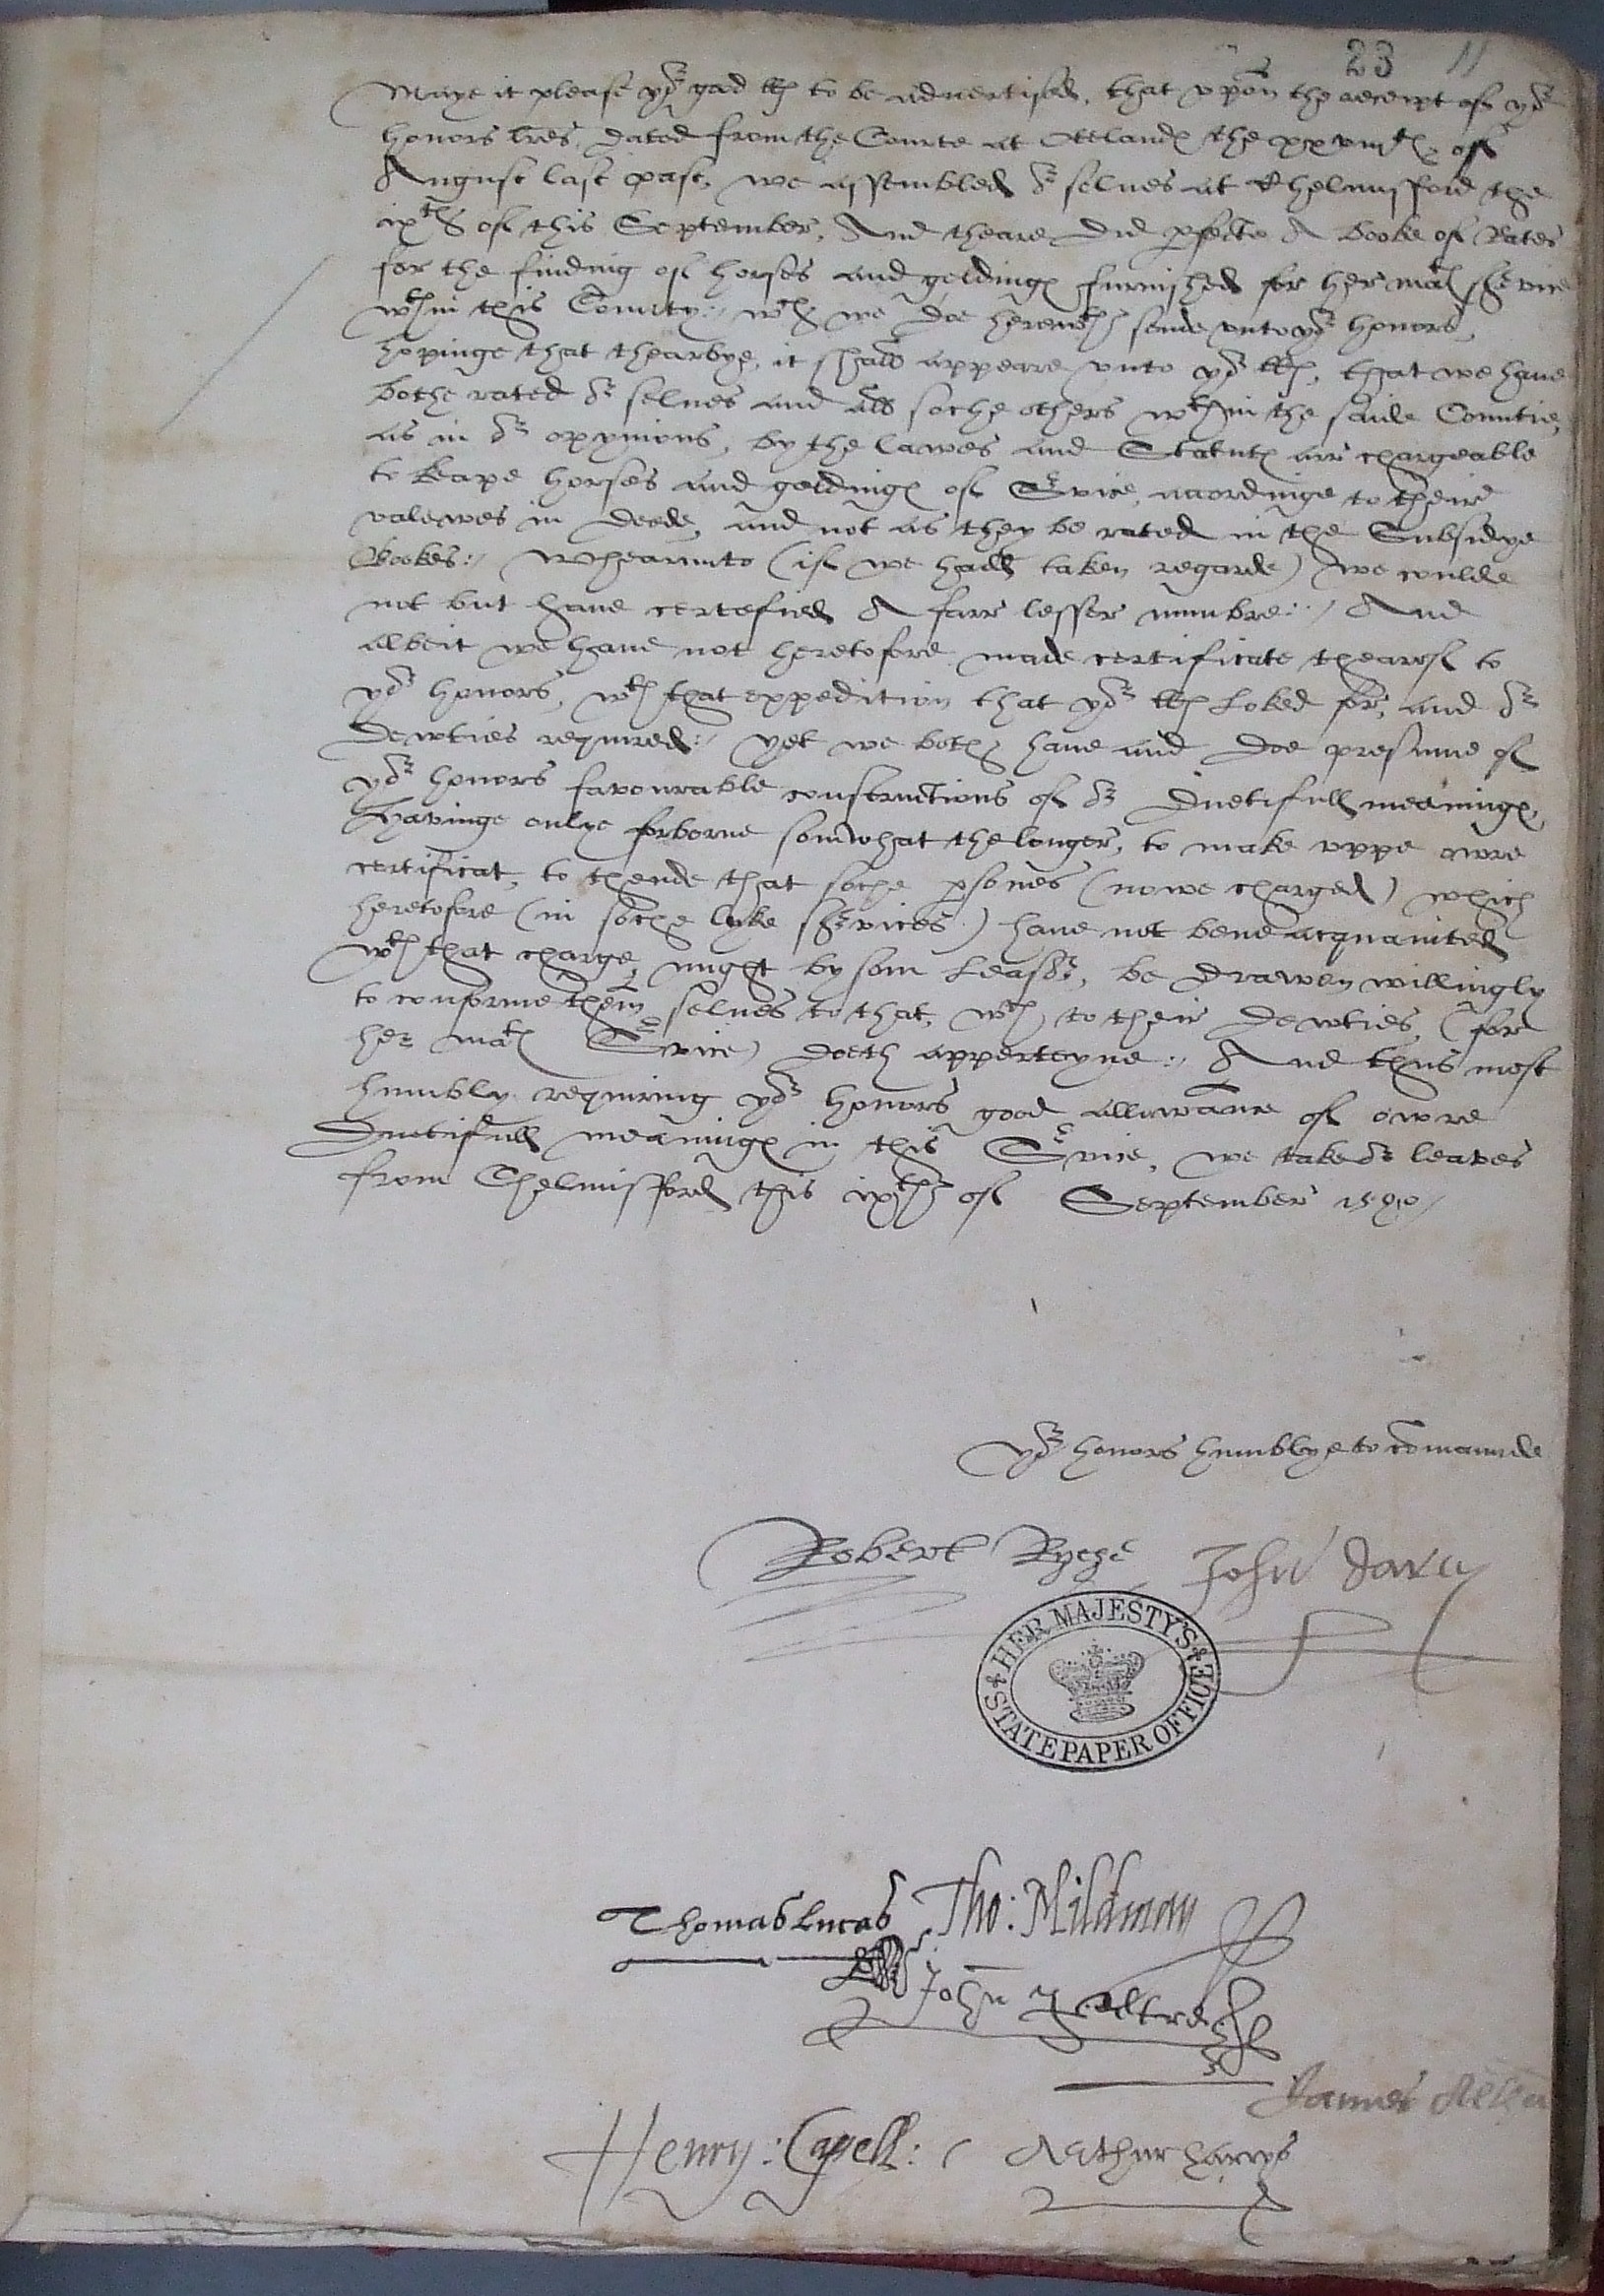 23 11
Maye it please yor good llps to be advertised, that uppon the receipt of yor
honors lres, dated from the Courte at Otelands the xxviijth of
August last past, we assembled or selves at Chelmisford the
ixth of this September, And theare did pfecte A booke of Rates
for the finding of horses and geldings furnished for her mats service
wthin this Countye:/ wch we doe herewth sende unto yor honors,
hopinge that thearbye, it shall appeare unto yor llps, that we have
bothe rated or selves and all soche others wthin the saide Countie,
as in or opynions, by the lawes and Statuts are chargeable
to keape horses and geldings of Service, accordinge to theire
valewes in deede, and not as they be rated in the Subsidye
Bookes:/ Whearunto (if we hadd taken regarde) we coulde
not but have certefied A farr lesser numbre:/ And
albeit we have not heretofore made certificate thearof to
yor honors, wth that expedition that yor llps loked for, and or
dewties required:/ yet we both have and doe presume of
yor honors favourable constructions of or duetifull meanings,
Havinge onlye forborne somwhat the longer, to make uppe owre
certificat, to thende that soche psones (nowe charged) which
heretofore (in soche lyke services) have not bene acquainted
wth that charge, might by som leasor, be drawen willingly
to conforme them selves to that, wch to their dewties, (for
her mats Service) doeth apperteyne:/ And thus most
humbly requiring yor honors good allowance of owre
Duetifull meanings in this Service, we take or leaves
from Chelmisford this ixth of September 1580/
Yor honors humblye to comaunde
Robert Ryche John Darcy
HER MAJESTY'S
STATE PAPER OFFICE
Thomas Lucas Tho: Mildmay
John
James
Henry: Capell: Arthur Harrys